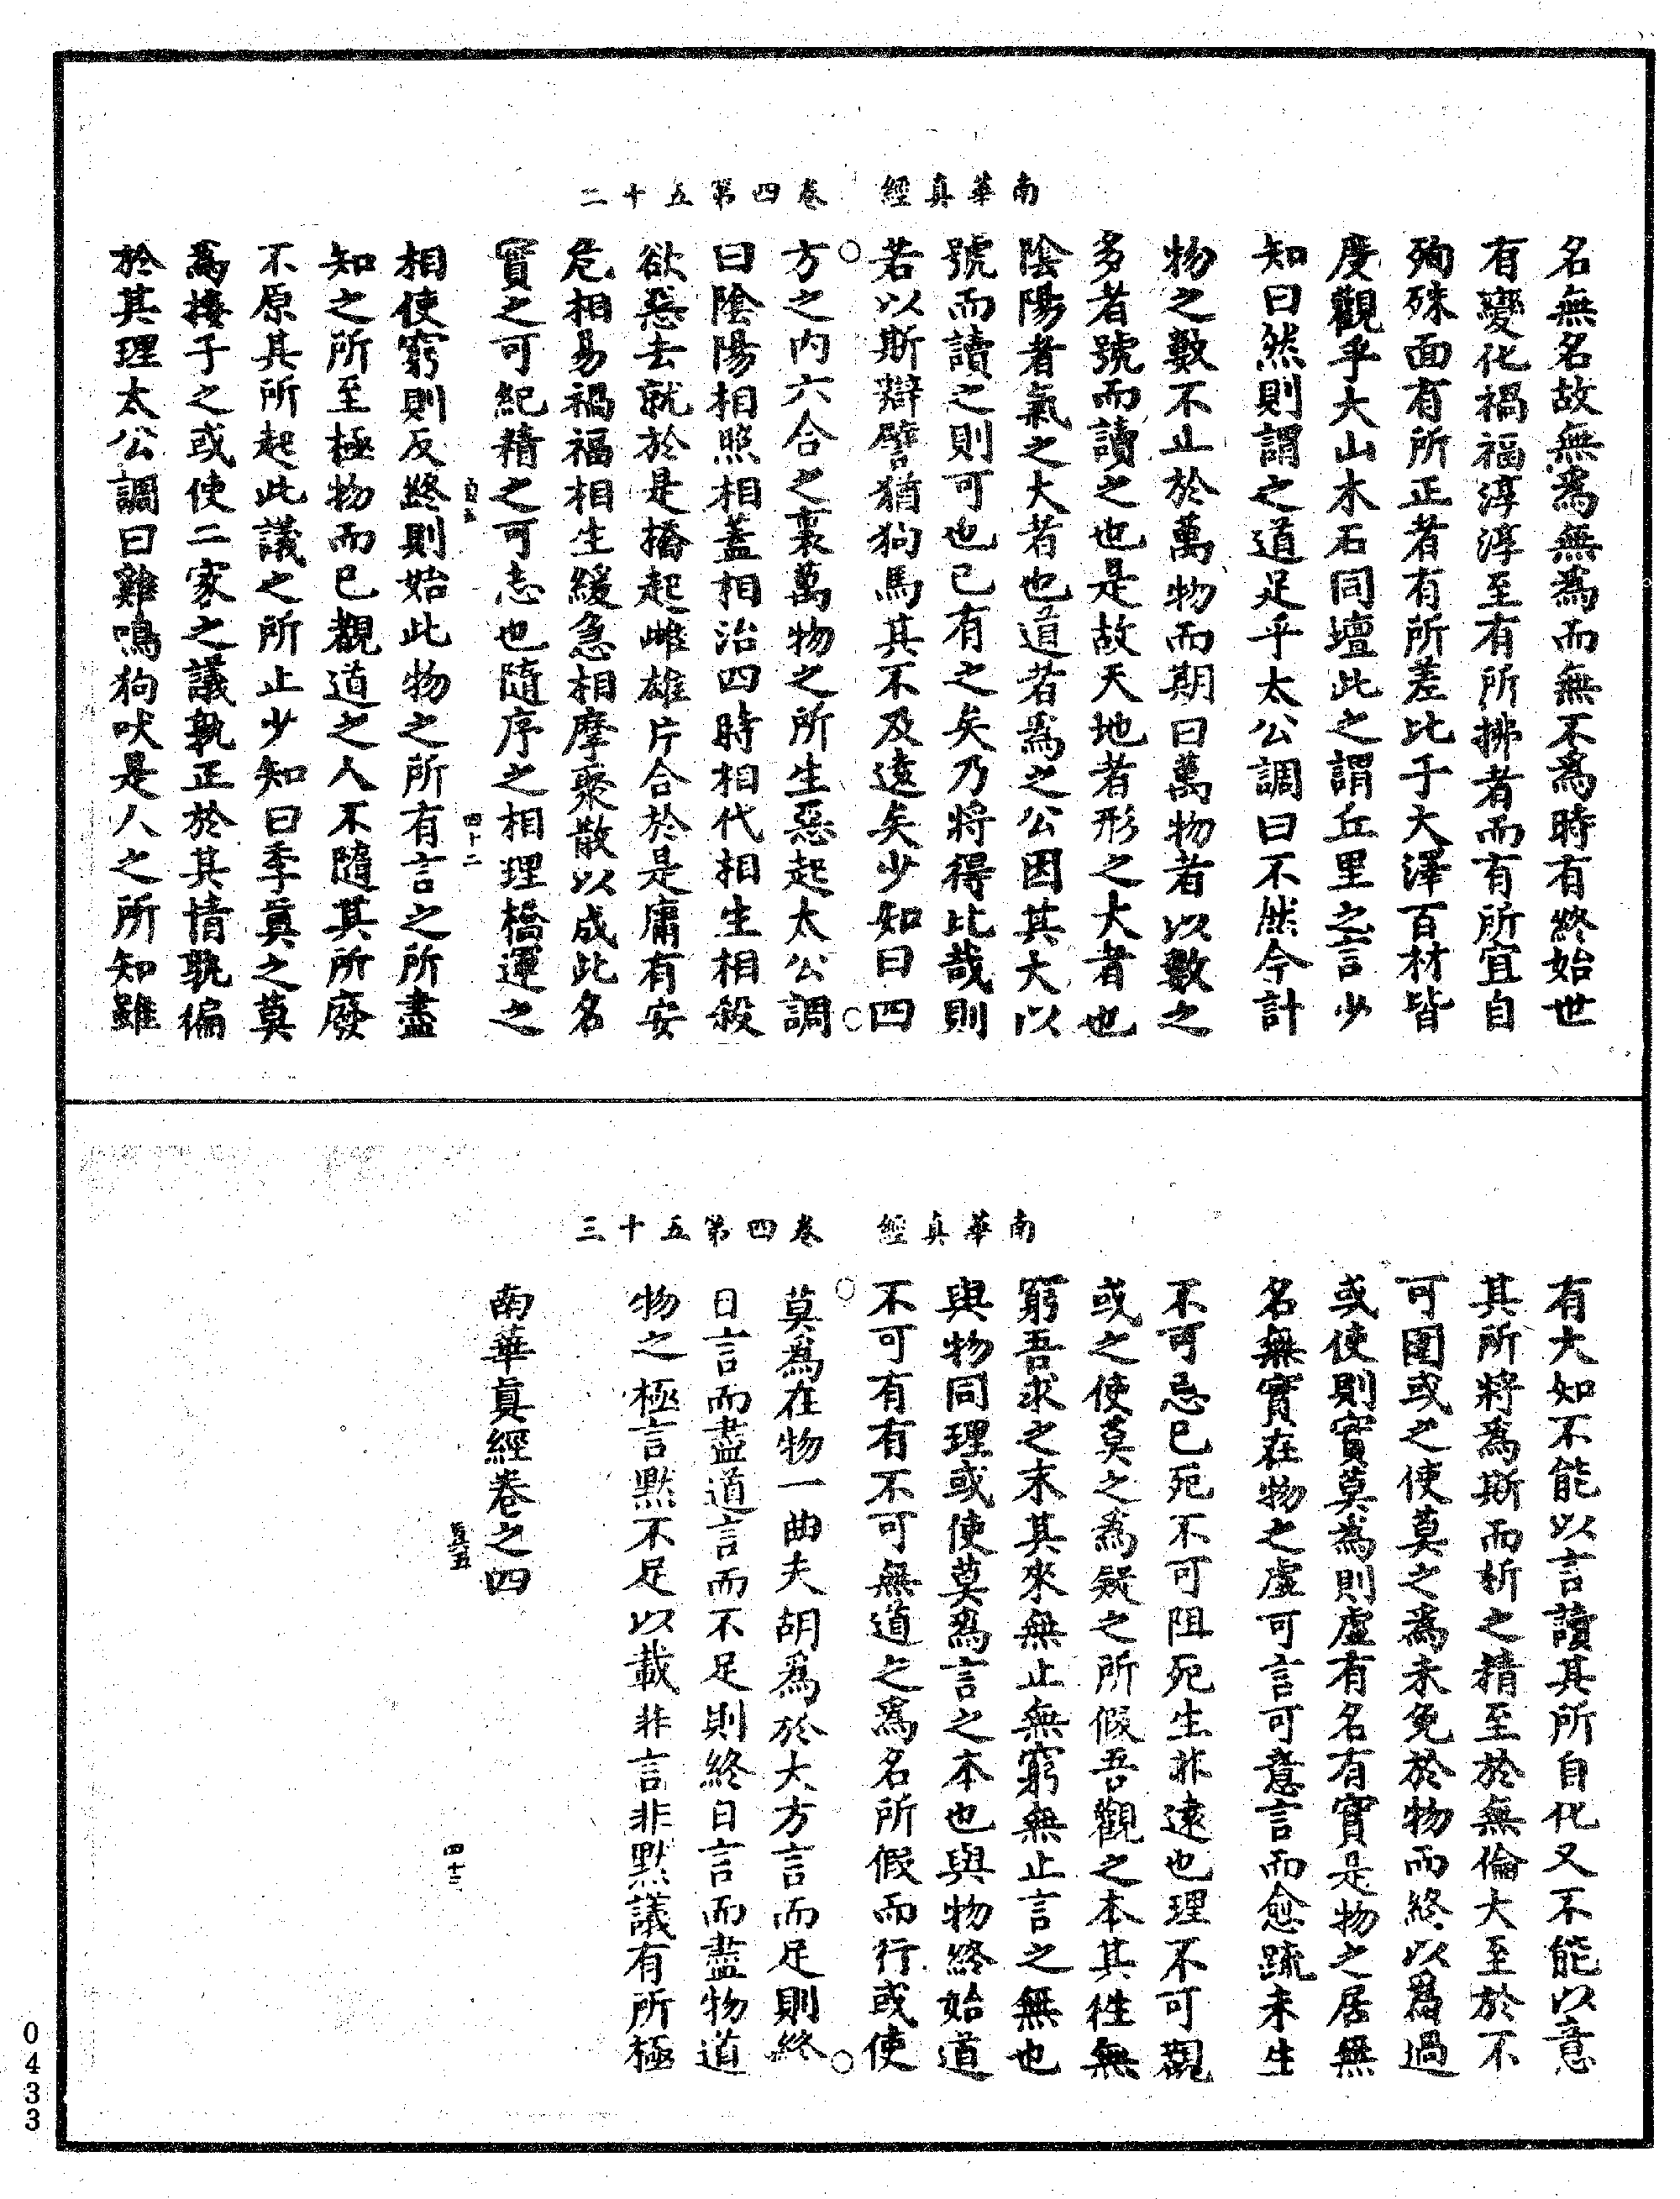 南華真經　卷四第五十二
名無名故無為無為而無不為時有終始世
有變化禍福淳淳至有所拂者而有所宜自
殉殊面有所正者有所差比于大澤百材皆
度觀乎大山木石同壇此之謂丘里之言少
知曰然則謂之道足乎太公調曰不然今計
物之數不止於萬物而期曰萬物者以數之
多者號而讀之也是故天地者形之大者也
陰陽者氣之大者也道者為之公因其大以
號而讀之則可也已有之矣乃將得比哉則
若以斯辯譬猶狗馬其不及遠矣少知曰四
方之内六合之裏萬物之所生惡起太公調
曰陰陽相照相蓋相治四時相代相生相殺
欲惡去就於是橋起雌雄片合於是庸有安
危相易禍福相生緩急相摩聚散以成此名
實之可紀精之可志也隨序之相理橋運之
相使窮則反終則始此物之所有言之所盡
知之所至極物而已覩道之人不隨其所廢
不原其所起此議之所止少知曰季真之莫
為接子之或使二家之議孰正於其情孰偏
於其理太公調曰雞鳴狗吠是人之所知雖
四十二
南華真經　卷四第五十三
有大知不能以言讀其所自化又不能以意
其所將為斯而析之精至於無倫大至於不
可圍或之使莫之為未免於物而終以為過
或使則實莫為則虛有名有實是物之居無
名無實在物之虛可言可意言而愈疏未生
不可忌已死不可阻死生非遠也理不可觀
或之使莫之為疑之所假吾觀之本其往無
窮吾求之末其來無止無窮無止言之無也
與物同理或使莫為言之本也與物終始道
不可有有不可無道之為名所假而行或使
莫為在物一曲夫胡為於大方言而足則終
日言而盡道言而不足則終日言而盡物道
物之極言默不足以載非言非默議有所極
南華真經卷之四
四十三
0433